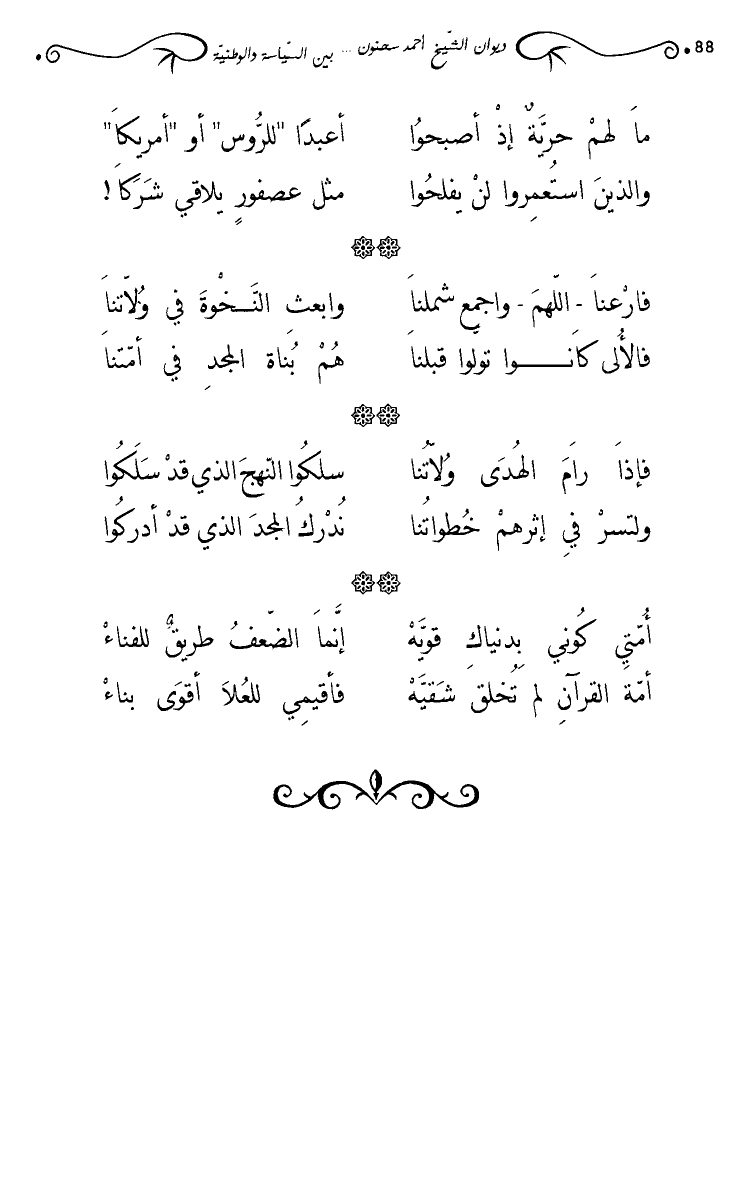 88 ديوان الشّيخ أحمد سحنون ... بين السّياسة والوطنيّة
ماَ لهمْ حريَّةٌ إذْ أصبحوُا أعبدًا "للرُّوس" أو "أمريكاَ"
والذينَ استُعمِروا لنْ يفلحُوا مثل عصفورٍ يلاقي شَرَكاَ !
فارْعناَ - اللّهمَ - واجمع شملناَ وابعثِ النَّـخْوةَ في وُلاّتناَ
فالأُلى كاَنـــوا تولوا قبلناَ هُمْ بُناة المجدِ في أمّتناَ
فإذاَ رامَ الهُدَى وُلاّتُنا سلكُوا النّهجَ الذي قدْ سَلَكُوا
ولتسرْ فيِ إثرهمْ خُطواتُنا نُدْركُ المجدَ الذي قدْ أدركُوا
أُمّتيِ كُوني بِدنياكِ قويَّهْ إنَّماَ الضّعفُ طريقٌ للفناءْ
أمّة القرآنِ لم تُخلق شَقيَّهْ فأقيمِي للعُلاَ أقوَى بناءْ